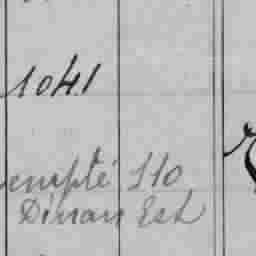 1041
empté 110
Dinan Est